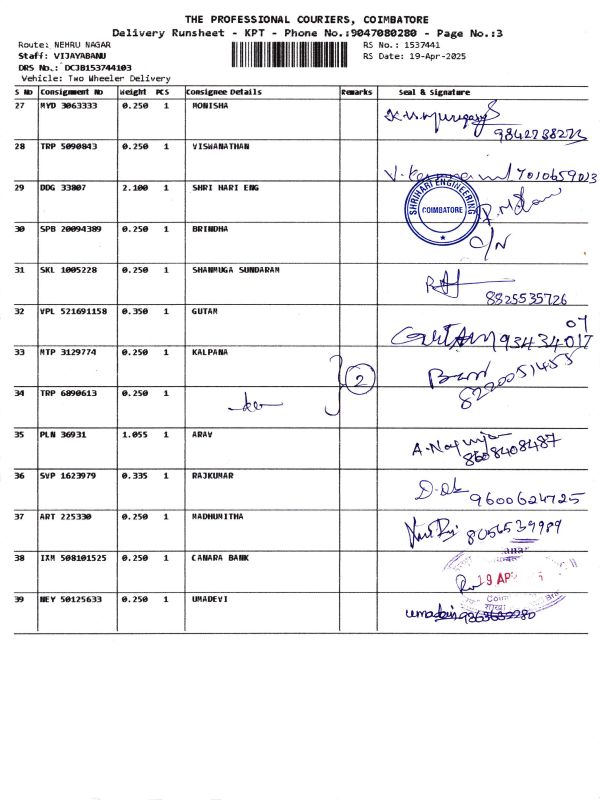 THE PROFESSIONAL COURIERS, COIMBATORE
Delivery Runsheet - KPT - Phone No.:9047080280 - Page No.:3
Route: NEHRU NAGAR
RS No.: 1537441
Staff: VIJAYABANU
RS Date: 19-Apr-2025
DRS No.: DCJB153744103
Vehicle: Two Wheeler Delivery
S No Consignment No Weight PCS Consignee Details Remarks Seal & Signature
27 MYD 3063333 0.250 1 MONISHA
9842738273
28 TRP 5090843 0.250 1 VISWANATHAN
7010659013
29 DDG 33807 2.100 1 SHRI HARI ENG
SHRIHARI ENGINEERING
COIMBATORE
30 SPB 20094389 0.250 1 BRINDHA
C/N
31 SKL 1005228 0.250 1 SHANMUGA SUNDARAM
8825535726
32 VPL 521691158 0.350 1 GUTAM
33 MTP 3129774 0.250 1 KALPANA
2
8220051455
34 TRP 6890613 0.250 1
35 PLN 36931 1.055 1 ARAV
8608408487
36 SVP 1623979 0.335 1 RAJKUMAR
9600624725
37 ART 225330 0.250 1 MADHUMITHA
8056539989
38 IXM 508101525 0.250 1 CANARA BANK
19 APR
39 NEY 50125633 0.250 1 UMADEVI